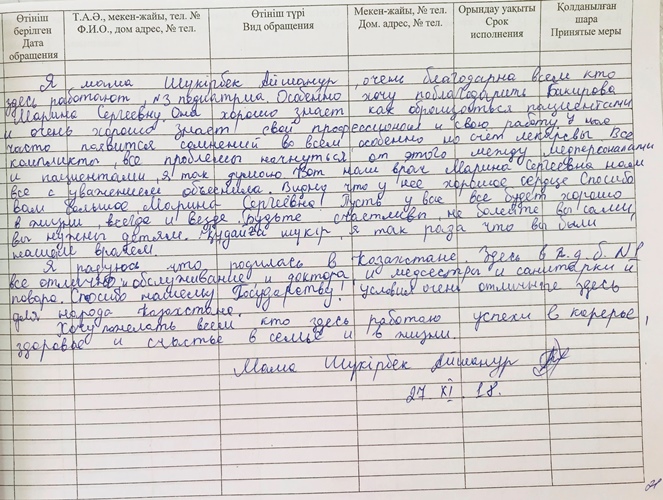 Өтініш берілген Дата обращения
Т.А.Ә., мекен-жайы, тел. № Ф.И.О., дом адрес, № тел.
Өтініш түрі Вид обращения
Мекен-жайы, № тел. Дом. адрес, № тел.
Орындау уақыты Срок исполнения
Қолданылған шара Принятые меры
Я мама Шукірбек Айшанур, очень благодарна всем кто
здесь работают, №3 педиатрия. Особенно хочу поблагодарить Бакирова
Марина Сергеевну, Она хорошо знает как обращаться пациентами
и очень хорошо знает свой профессионал и свою работу у нас
часто появится сомнений во всем, особенно на счет лекарствы Все
компликты, все проблемы начнуться от этого между медперсоналами
и пациентами, я так думаю. Вот наш врач Марина Сергеевна нам
все с уважением объеснила. Видно, что у нее хорошое сердце Спосибо
вам большое, Марина Сергеевна Пусть у вас все будет хорошо
в жизни, всегда и везде. Будьте счастливы, не болейте вы самы,
вы нужны детям. Құдайға шүкір, я так рада что вы были
нашем врачем.
Я радуюсь что родилась в Казахстане. Здесь в К.д.б. №1
все отлично и обслуживание и доктора и медсестра и санитарки и
повара. Спосибо нашему Государству! условия очень отличные здесь
для народа Казахстана.
Хочу пожелать всем кто здесь работаю успехи в карерье,
здоровье и счастье в семье и в жизни.
Мама Шукірбек Айшанур
27 XI. 18.